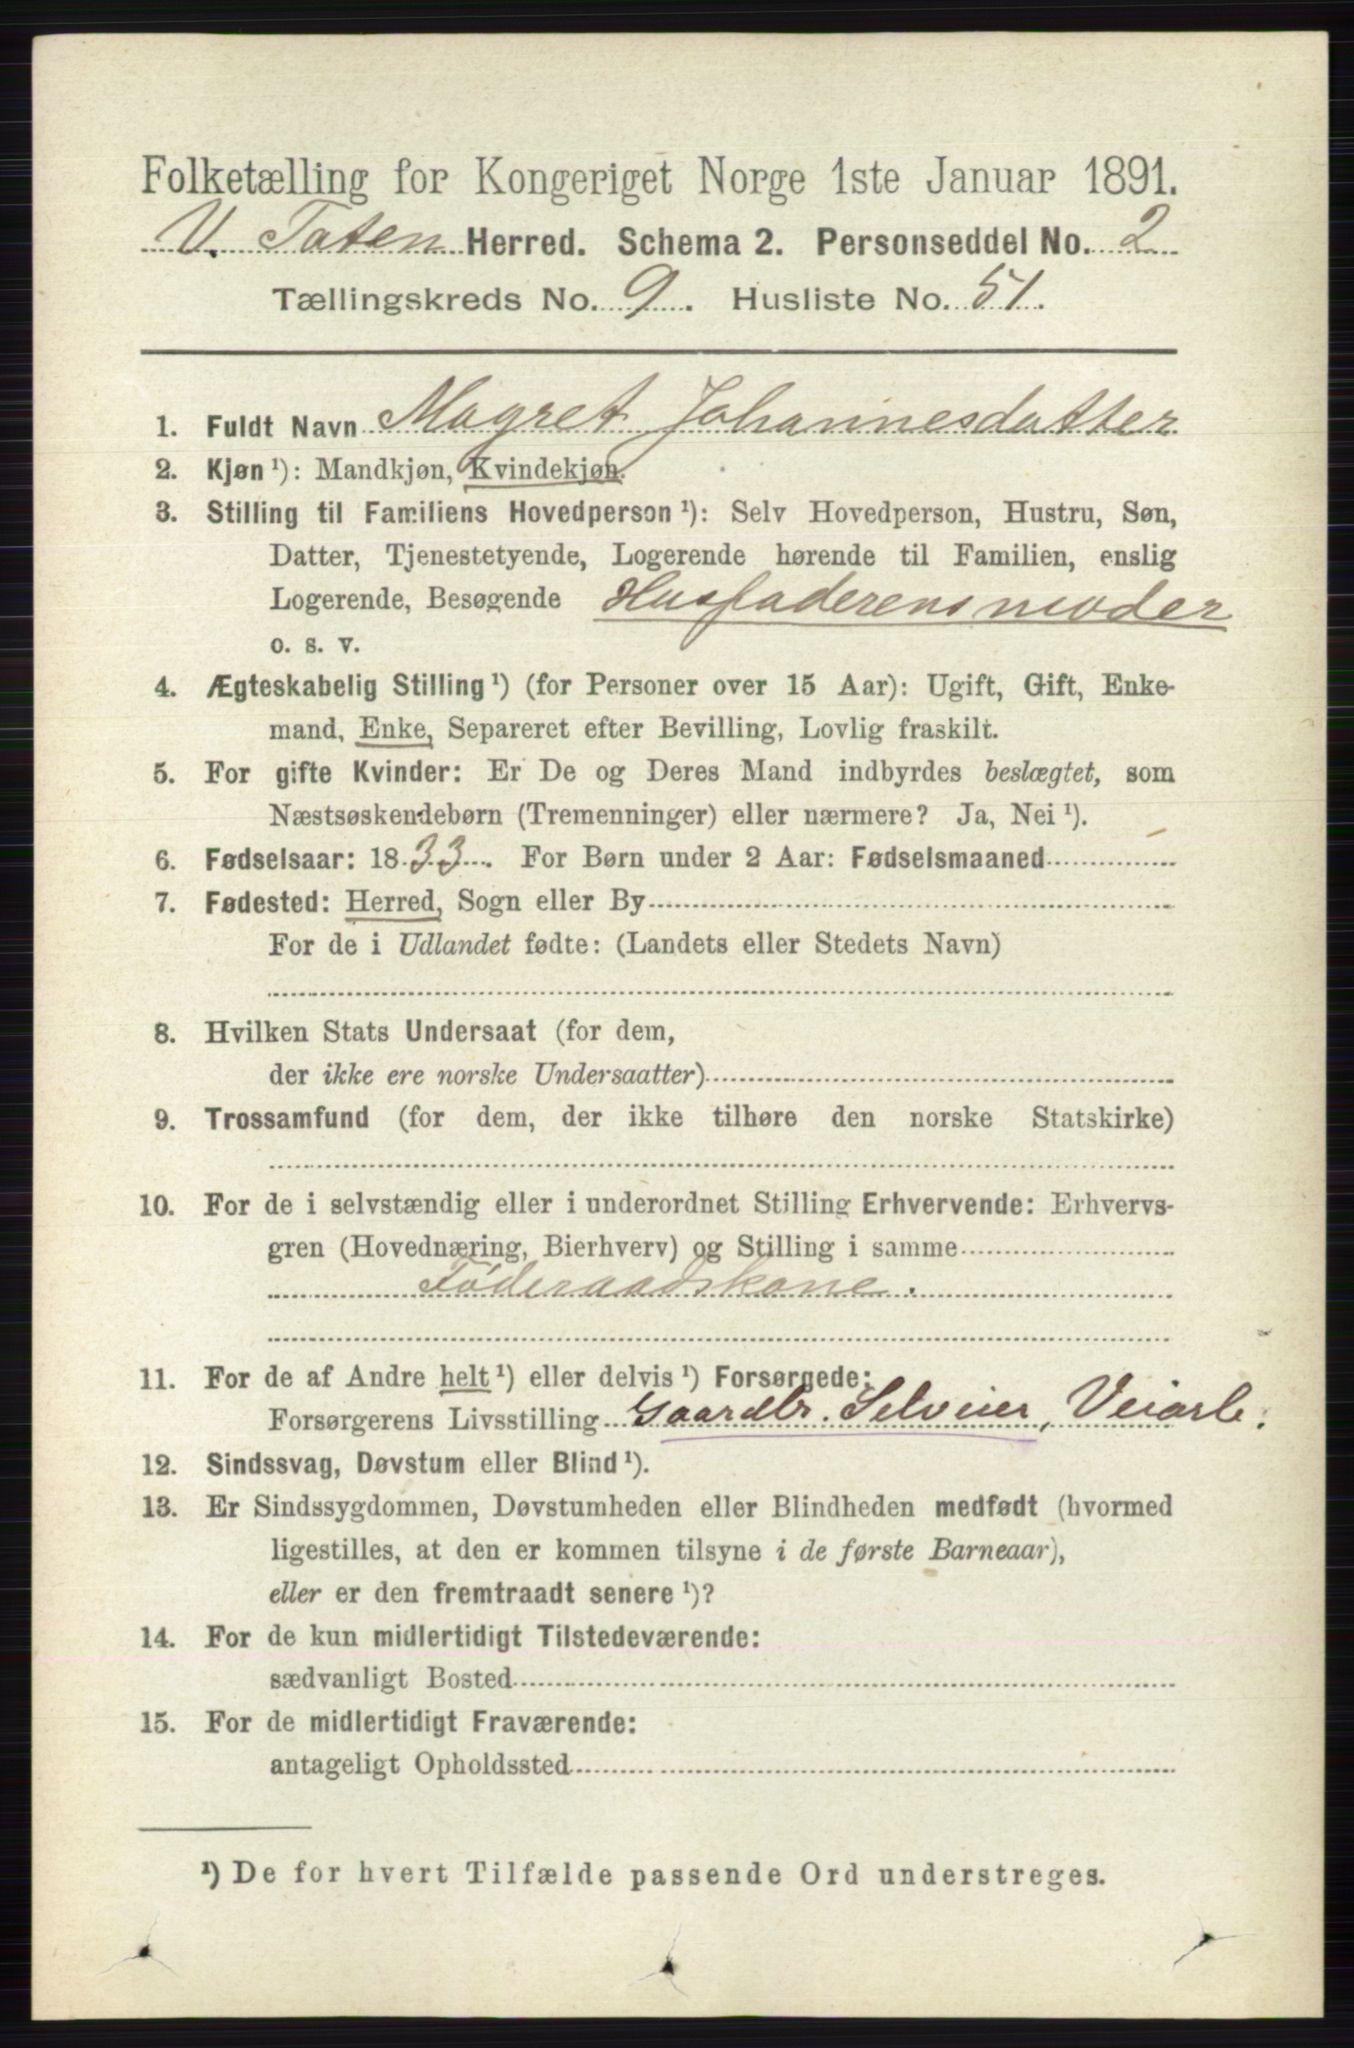 Folketælling for Kongeriget Norge 1ste Januar 1891.
V. Toten Herred. Schema 2. Personseddel No. 2
Tællingskreds No. 9. Husliste No. 51.
1. Fuldt Navn Magret Johannesdatter
2. Kjøn ¹): Mandkjøn, Kvindekjøn.
3. Stilling til Familiens Hovedperson ¹): Selv Hovedperson, Hustru, Søn,
Datter, Tjenestetyende, Logerende hørende til Familien, enslig
Logerende, Besøgende Husfaderens moder
o. s. v.
4. Ægteskabelig Stilling ¹) (for Personer over 15 Aar): Ugift, Gift, Enke-
mand, Enke, Separeret efter Bevilling, Lovlig fraskilt.
5. For gifte Kvinder: Er De og Deres Mand indbyrdes beslægtet, som
Næstsøskendebørn (Tremenninger) eller nærmere? Ja, Nei ¹).
6. Fødselsaar: 1833. For Børn under 2 Aar: Fødselsmaaned
7. Fødested: Herred, Sogn eller By
For de i Udlandet fødte: (Landets eller Stedets Navn)
8. Hvilken Stats Undersaat (for dem,
der ikke ere norske Undersaatter)
9. Trossamfund (for dem, der ikke tilhøre den norske Statskirke)
10. For de i selvstændig eller i underordnet Stilling Erhvervende: Erhvervs-
gren (Hovednæring, Bierhverv) og Stilling i samme
Føderaadskone.
11. For de af Andre helt ¹) eller delvis ¹) Forsørgede:
Forsørgerens Livsstilling Gaardbr. Selveier, Veiarb.
12. Sindssvag, Døvstum eller Blind ¹).
13. Er Sindssygdommen, Døvstumheden eller Blindheden medfødt (hvormed
ligestilles, at den er kommen tilsyne i de første Barneaar),
eller er den fremtraadt senere ¹)?
14. For de kun midlertidigt Tilstedeværende:
sædvanligt Bosted
15. For de midlertidigt Fraværende:
antageligt Opholdssted
¹) De for hvert Tilfælde passende Ord understreges.